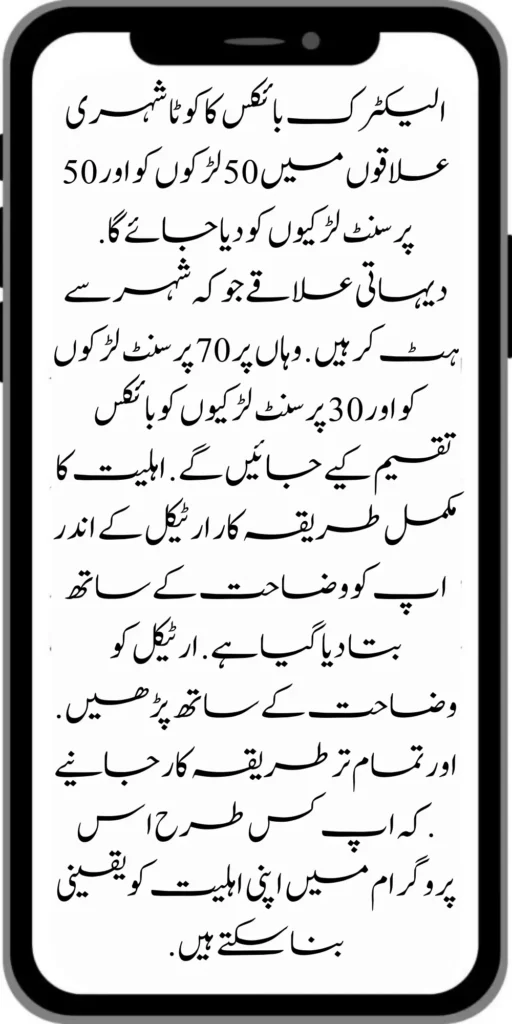 الیکٹرک بائکس کا کوٹا شہری
علاقوں میں 50 لڑکوں کو اور 50
پر سنٹ لڑکیوں کو دیا جائے گا.
دیہاتی علاقے جو کہ شہر سے
ہٹ کر ہیں. وہاں پر 70 پر سنٹ لڑکوں
کو اور 30 پر سنٹ لڑکیوں کو بائکس
تقسیم کیے جائیں گے. اہلیت کا
مکمل طریقہ کار ارٹیکل کے اندر
اپ کو وضاحت کے ساتھ
بتا دیا گیا ہے. ارٹیکل کو
وضاحت کے ساتھ پڑھیں.
اور تمام تر طریقہ کار جانیے
. کہ اپ کس طرح اس
پروگرام میں اپنی اہلیت کو یقینی
بنا سکتے ہیں.